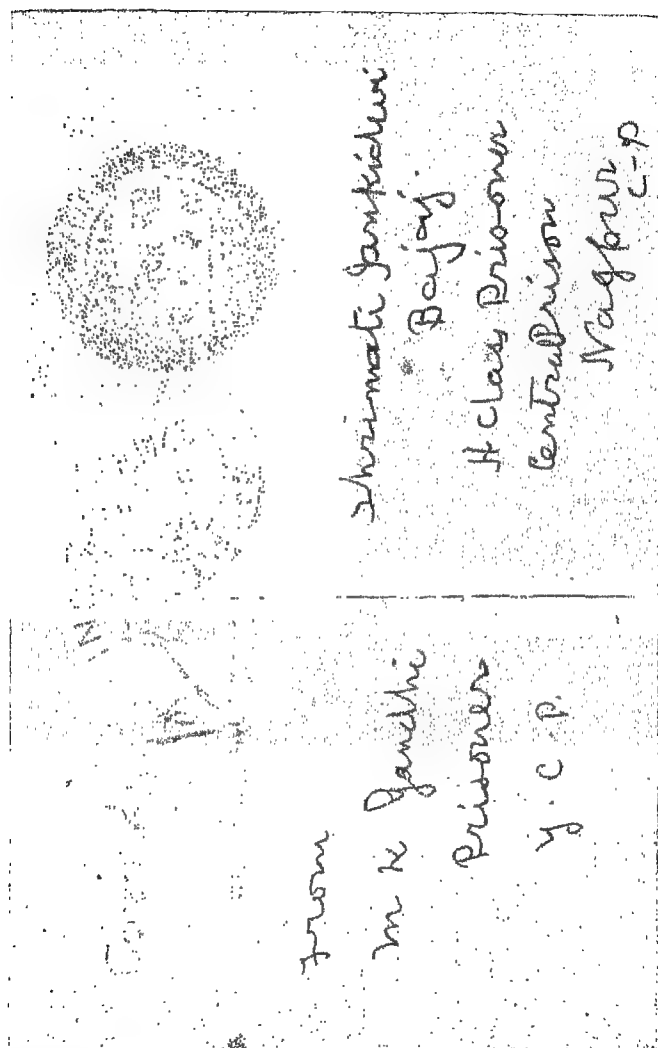 From
M K Gandhi
Prisoner
Y. C. P.
Shrimati Jankidevi
Bajaj.
A Class Prisoner
Central Prison
Nagpur
C-P